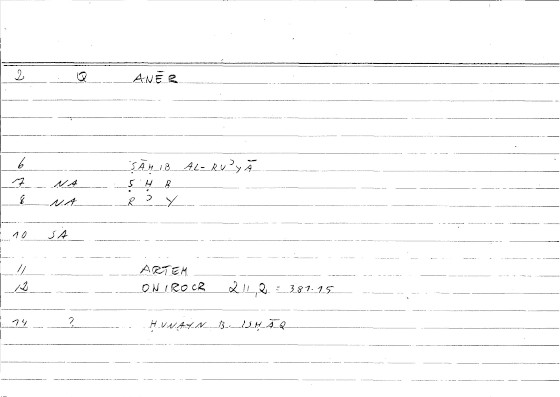 2 Q ANĒR
6 ṢĀḤIB AL-RUʾYĀ
7 NA Ṣ Ḥ R
8 NA R ʾ Y
10 SA
11 ARTEM
12 ONIROCR 211,2 = 381.15
14 ? ḤUNAYN B. ISḤĀQ